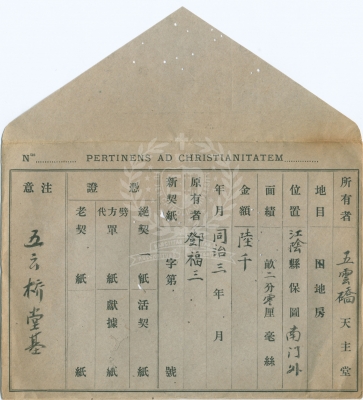 Nᵒˢ PERTINENS AD CHRISTIANITATEM
所有者 五雲礄 天主堂
地目 田地房
位置 江陰縣保圖南门外
面績 畝二分零厘毫絲
金額 陸千
年月 同治三年 月
原有者 鄧福三
新契紙 字第 號
憑證 絕契一紙活契 紙
代方勞單 紙獻據 紙
老契 紙 紙
注意 五云桥堂基